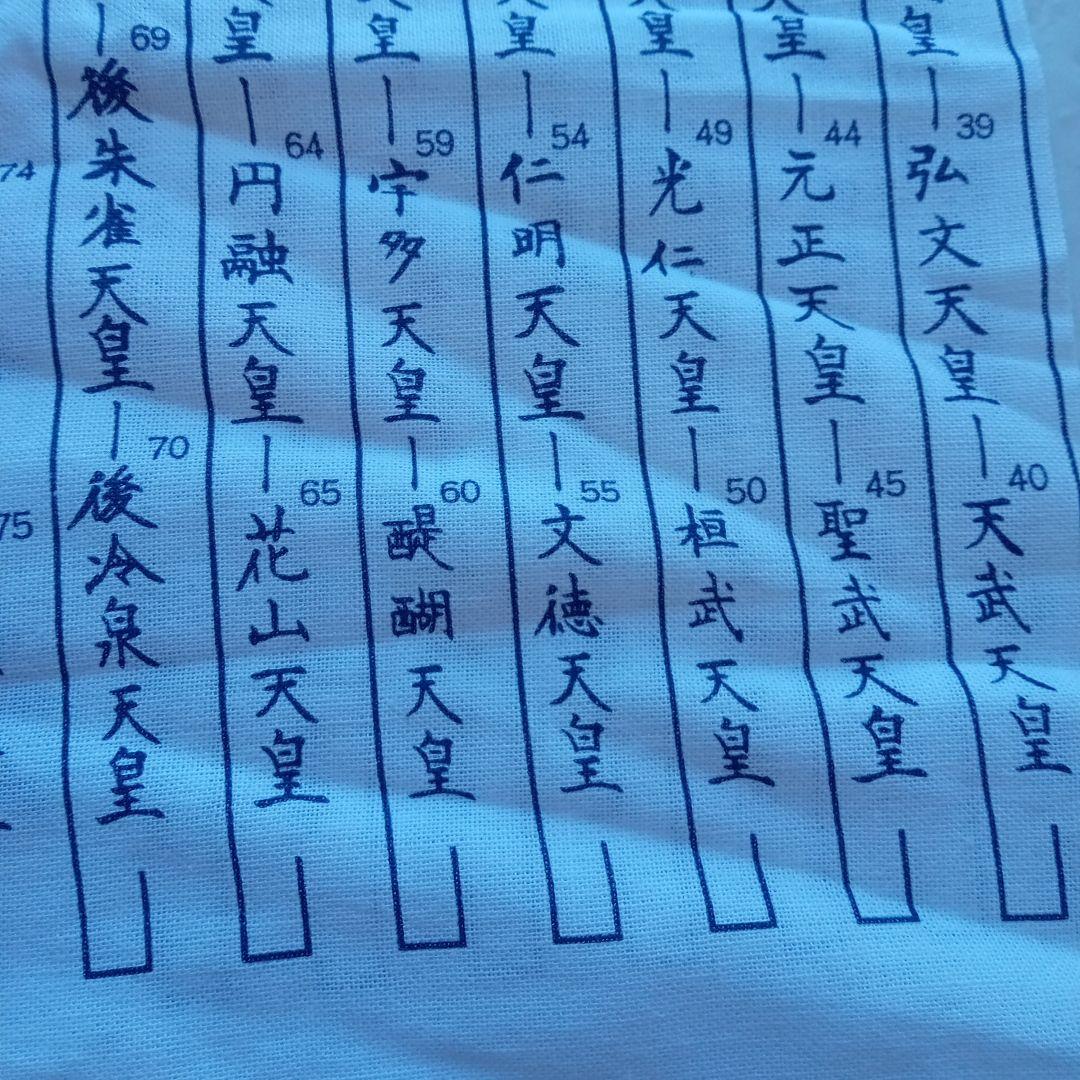 皇―39弘文天皇―40天武天皇
皇―44元正天皇―45聖武天皇
皇―49光仁天皇―50桓武天皇
皇―54仁明天皇―55文徳天皇
皇―59宇多天皇―60醍醐天皇
皇―64円融天皇―65花山天皇
―69後朱雀天皇―70後冷泉天皇
74
75